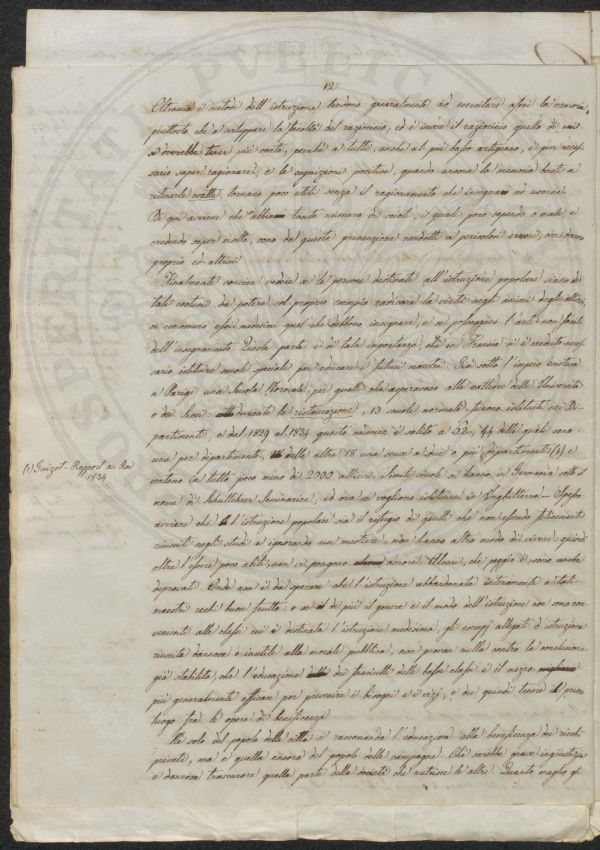 12
Oltracciò i metodi dell'istruzione tendono generalmente ad esercitare assai la memoria,
piuttosto che a sviluppare la facoltà del raziocinio, ed è invece il raziocinio quello di cui
si dovrebbe tener più conto, perchè a tutti, anche al più basso artigiano, è pur neces-
sario saper ragionare, e le cognizioni positive, quando ancora la memoria basti a
ritenerle tornano poco utili senza il ragionamento che insegna ad usarne.
Di qui avviene che abbiam tanto numero di scioli, i quali poco sapendo o male, e
credendo saper molto, sono da questa prevenzione condotti a pericolosi errori, con danno
proprio ed altrui.
Finalmente conviene vedere se le persone destinate all'istruzione popolare siano di
tali costumi da potere col proprio esempio radicare la virtù negli animi degli allievi,
se conoscano essi medesimi quel che debbono insegnare, e se posseggano l'arte non facile
dell'insegnamento. Questa parte è di tale importanza, che in Francia si è creduto neces-
sario istituire scuole speciali per educare i futuri maestri. Già sotto l'impero esisteva
a Parigi una Scuola Normale per quelli che aspiravano alle cattedre delle Università
e dei Licei. durante la ristaurazione, 13 scuole normali furono istituite nei Di-
partimenti, e dal 1829 al 1834 questo numero è salito a 62, 44 delle quali sono
una per dipartimento, delle altre 18 una serve a due o più dipartimenti (1) e
contano in tutto poco meno di 2000 allievi. Simili scuole si hanno in Germania sotto il
(1) Guizot - Rapport au Roi
1834
nome di Schullehrer Seminarien, ed ora si vogliono istituire in Inghilterra — Spesso
avviene che l'istruzione popolare sia il refugio di quelli che non essendo felicemente
riusciti negli studi e ignorando un mestiere, non hanno altro modo di vivere: quindi
oltre l'essere poco abili, non vi pongono amore. Alcuni, che peggio è, sono anche
depravati. Onde non è da sperare che l'istruzione abbandonata interamente a tali
maestri rechi buon frutto: e se di più il genere e il modo dell'istruzione non sono con-
venienti alle classi cui è destinata l'istruzione medesima, gli esempj allegati d'istruzione
riuscita dannosa o inutile alla morale pubblica, non provan nulla contro la conclusione
già stabilita, che l'educazione dei fanciulli delle basse classi è il mezzo
più generalmente efficace per prevenire i bisogni e i vizj, e dee quindi tenere il primo
luogo fra le opere di beneficenza.
Nè solo del popolo della città si raccomanda l'educazione alla beneficenza dei ricchi
privati, ma quella ancora del popolo delle campagne. Che sarebbe grave ingiustizia
e dannosa trascurare quella parte della società che nutrisce le altre. Quanto meglio gl'